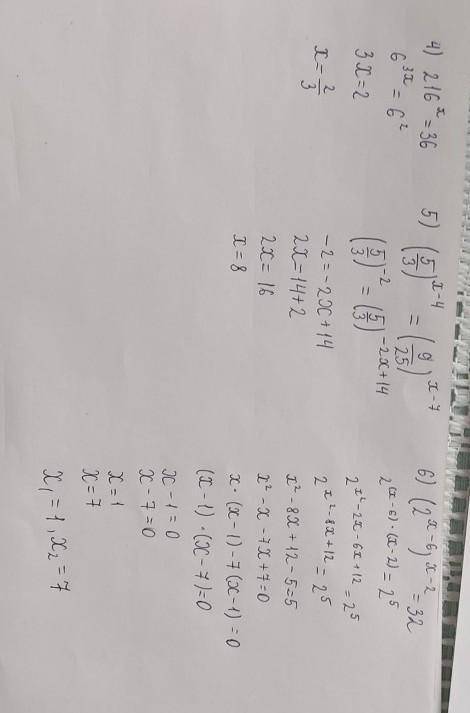 4) 216^x = 36
6^{3x} = 6^2
3x = 2
x = \frac{2}{3}
5) (\frac{5}{3})^{x-4} = (\frac{9}{25})^{x-7}
(\frac{5}{3})^{-2} = (\frac{5}{3})^{-2x+14}
-2 = -2x+14
2x = 14+2
2x = 16
x = 8
6) (2^{x-6})^{x-2} = 32
2^{(x-6)·(x-2)} = 2^5
2^{x^2-2x-6x+12} = 2^5
2^{x^2-8x+12} = 2^5
x^2-8x+12-5=5
x^2-x-7x+7=0
x·(x-1)-7(x-1)=0
(x-1)·(x-7)=0
x-1=0
x-7=0
x=1
x=7
x_1=1, x_2=7